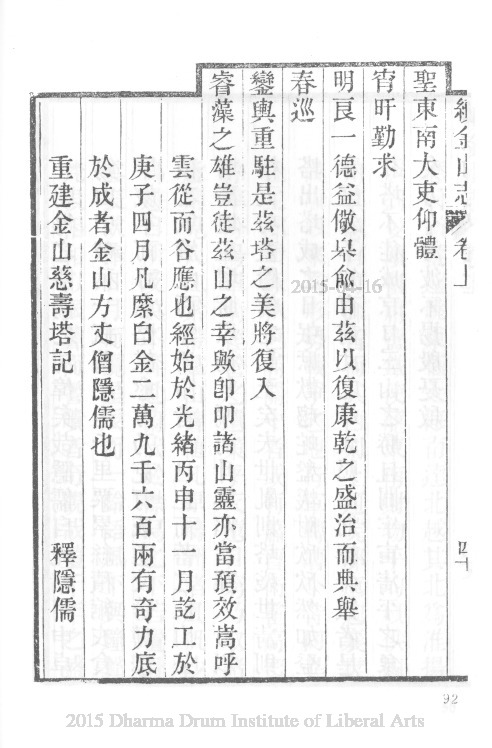 續金山志 卷上
四十
聖東南大吏仰體
宵旰勤求
明良一德益儆皋俞由茲以復康乾之盛治而典舉
春巡
鑾輿重駐是茲塔之美將復入
睿藻之雄豈徒茲山之幸歟卽叩諸山靈亦當預效嵩呼
雲從而谷應也經始於光緒丙申十一月訖工於
庚子四月凡縻白金二萬九千六百兩有奇力底
於成者金山方丈僧隱儒也
重建金山慈壽塔記 釋隱儒
92
2015-04-16
2015 Dharma Drum Institute of Liberal Arts